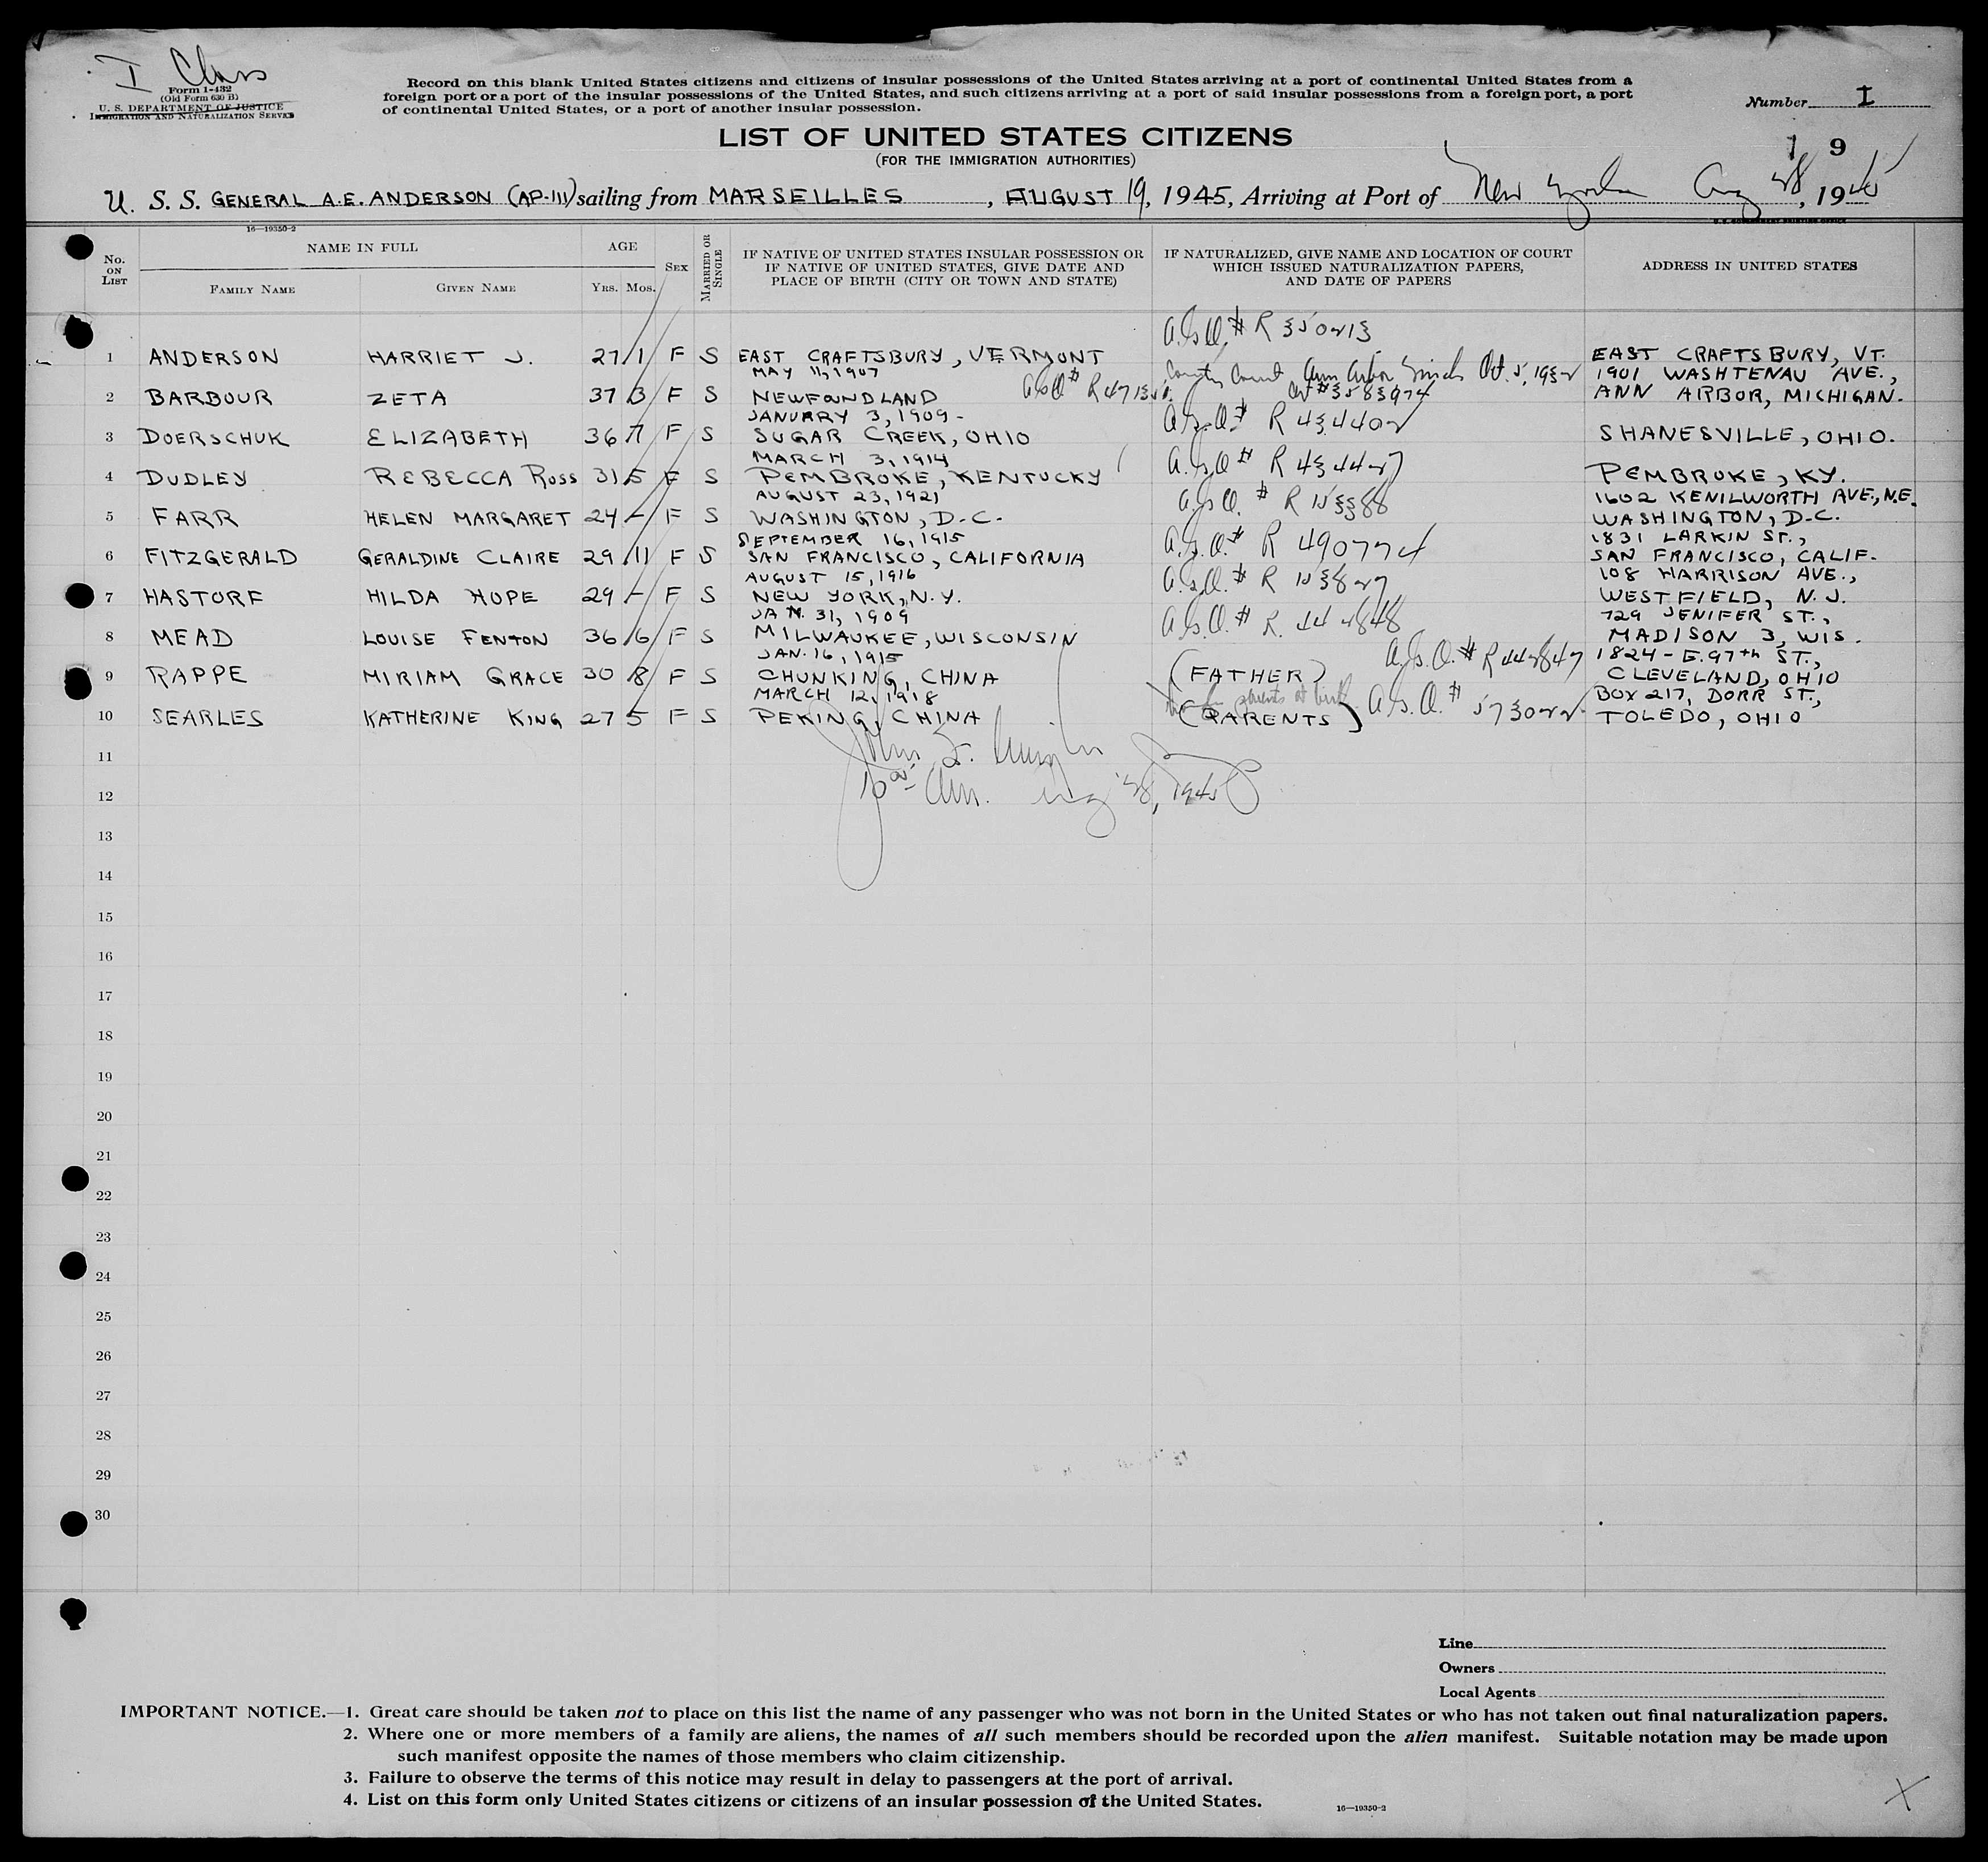 I Class
Form I-432
(Old Form 630 B)
U. S. DEPARTMENT OF JUSTICE
IMMIGRATION AND NATURALIZATION SERVICE
Record on this blank United States citizens and citizens of insular possessions of the United States arriving at a port of continental United States from a
foreign port or a port of the insular possessions of the United States, and such citizens arriving at a port of said insular possessions from a foreign port, a port
of continental United States, or a port of another insular possession.
Number I
LIST OF UNITED STATES CITIZENS
(FOR THE IMMIGRATION AUTHORITIES)
1 9
U. S. S. GENERAL A.E. ANDERSON (AP-111) sailing from MARSEILLES, AUGUST 19, 1945, Arriving at Port of New York Aug 28, 1945
16—19350-2
U.S. GOVERNMENT PRINTING OFFICE
No. ON LIST
NAME IN FULL
FAMILY NAME
GIVEN NAME
AGE
YRS. MOS.
SEX
MARRIED OR SINGLE
IF NATIVE OF UNITED STATES INSULAR POSSESSION OR
IF NATIVE OF UNITED STATES, GIVE DATE AND
PLACE OF BIRTH (CITY OR TOWN AND STATE)
IF NATURALIZED, GIVE NAME AND LOCATION OF COURT
WHICH ISSUED NATURALIZATION PAPERS,
AND DATE OF PAPERS
ADDRESS IN UNITED STATES
A.G.O.# R 350213
1 ANDERSON HARRIET J. 27 1 F S EAST CRAFTSBURY, VERMONT EAST CRAFTSBURY, VT.
MAY 11, 1907 County Court Ann Arbor Mich Oct. 5, 1932 1901 WASHTENAU AVE.,
2 BARBOUR ZETA 37 3 F S NEWFOUNDLAND AGO# # 3583974 ANN ARBOR, MICHIGAN.
JANUARY 3, 1909 - A.G.O.# R 434402
3 DOERSCHUK ELIZABETH 36 7 F S SUGAR CREEK, OHIO SHANESVILLE, OHIO.
MARCH 3, 1914 A.G.O# R 434427
4 DUDLEY REBECCA ROSS 31 5 F S PEMBROKE, KENTUCKY PEMBROKE, KY.
AUGUST 23, 1921 A.G.O. # R 153388 1602 KENILWORTH AVE., N.E.
5 FARR HELEN MARGARET 24 - F S WASHINGTON, D.C. WASHINGTON, D.C.
SEPTEMBER 16, 1915 A.G.O.# R 490774 1831 LARKIN ST.,
6 FITZGERALD GERALDINE CLAIRE 29 11 F S SAN FRANCISCO, CALIFORNIA SAN FRANCISCO, CALIF.
AUGUST 15, 1916 A.G.O.# R 153827 108 HARRISON AVE.,
7 HASTORF HILDA HOPE 29 - F S NEW YORK, N.Y. WESTFIELD, N.J.
JAN. 31, 1909 A.G.O.# R. 442848 729 JENIFER ST.,
8 MEAD LOUISE FENTON 36 6 F S MILWAUKEE, WISCONSIN MADISON 3, WIS.
JAN. 16, 1915 A.G.O.# R 442847 1824 - E. 97th ST.,
9 RAPPE MIRIAM GRACE 30 8 F S CHUNKING, CHINA (FATHER) CLEVELAND, OHIO
MARCH 12, 1918 parents at birth A.G.O.# 573022 BOX 217, DORR ST.,
10 SEARLES KATHERINE KING 27 5 F S PEKING, CHINA (PARENTS) TOLEDO, OHIO
11
John
12
Aug 28, 1945
13
14
15
16
17
18
19
20
21
22
23
24
25
26
27
28
29
30
Line
Owners
Local Agents
IMPORTANT NOTICE.—1. Great care should be taken not to place on this list the name of any passenger who was not born in the United States or who has not taken out final naturalization papers.
2. Where one or more members of a family are aliens, the names of all such members should be recorded upon the alien manifest. Suitable notation may be made upon
such manifest opposite the names of those members who claim citizenship.
3. Failure to observe the terms of this notice may result in delay to passengers at the port of arrival.
4. List on this form only United States citizens or citizens of an insular possession of the United States.
16—19350-2
X